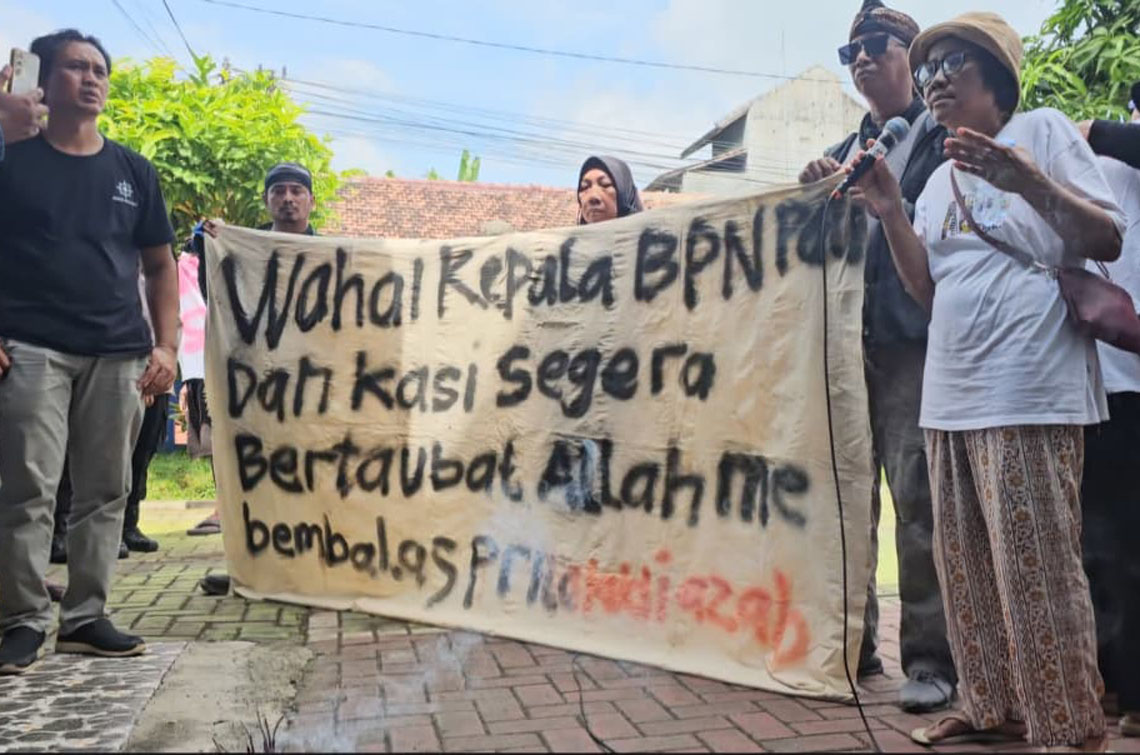 Wahai Kepala BPN Pati
Dan kasi segera
Bertaubat Allah me
bembalas
di azab